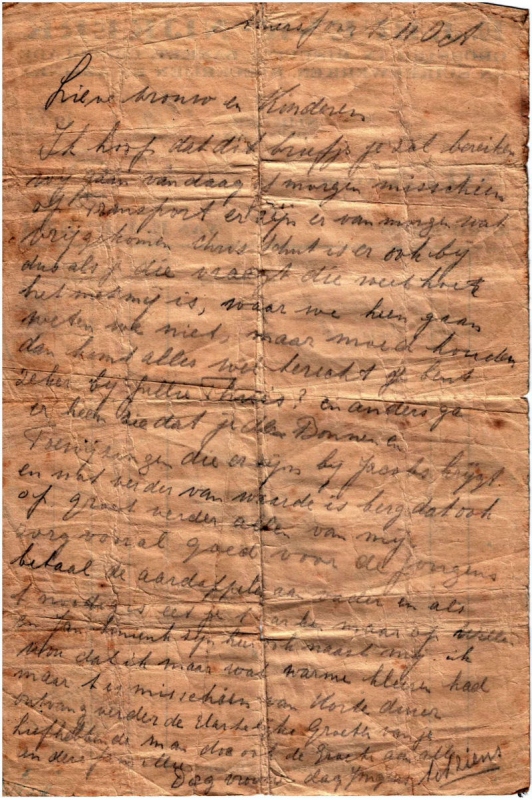 Amersfoort 11 Oct
Lieve vrouw en Kinderen
Ik hoop dat dit briefje je zal bereiken
wij gaan vandaag of morgen misschien
op transport er zijn er van morgen wat
vrij gekomen Chris Schut is er ook bij
dus als je die vraagt die weet hoe
het met mij is, waar we heen gaan
weten we niet, maar moed houden
dan komt alles wel terecht je bent
zeker bij jullie thuis? en anders ga
er heen zie dat je den Bonnen en
Toewijzingen die er zijn bij Jacobs krijgt
en wat verder van waarde is berg dat ook
op groet verder allen van mij
zorg vooral goed voor de jongens
betaal de aardappels aan vader en als
t noodig is eet je t maar op
en naast mij ik
wou dat ik maar wat warme kleeren had
maar t is misschien van korte duur
ontvang verder de Hartelijke Groeten van je
Liefhebbende man doe ook de Groeten aan
Dag vrouw dag Jongens